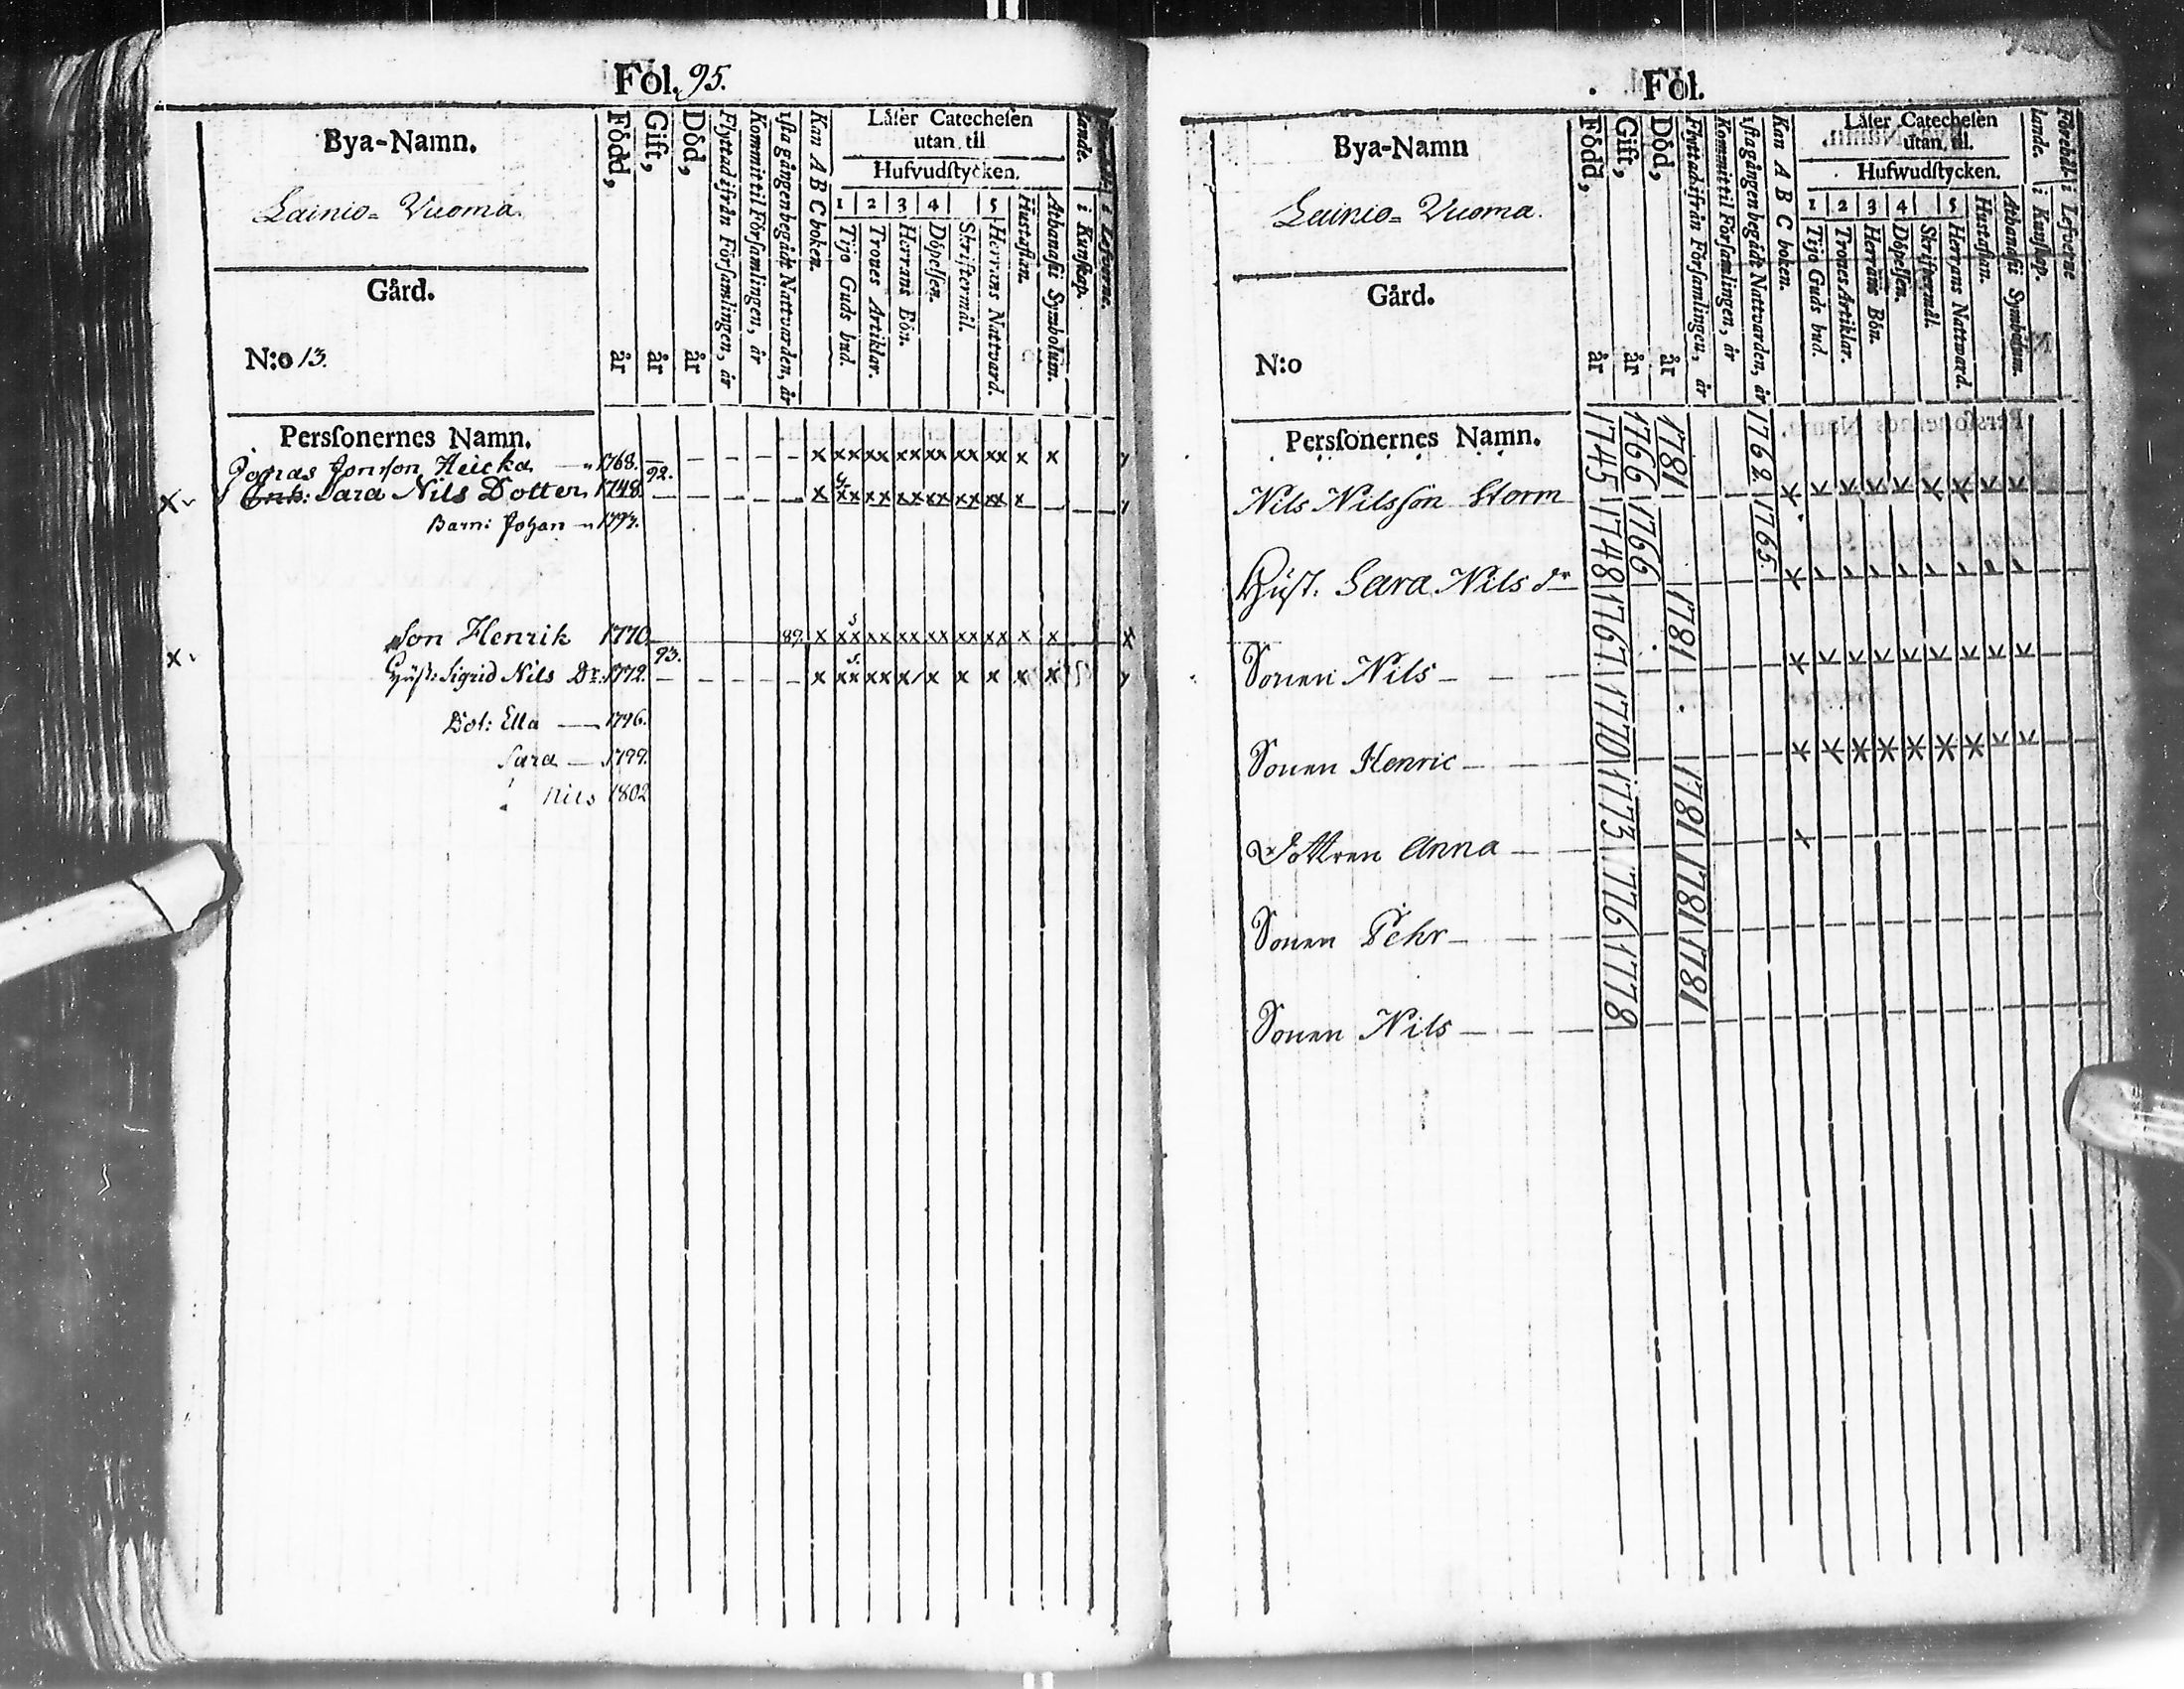 Fol. 95.
Bya-Namn.
Lainio= Vuoma.
Gård.
N:o 13.
Född, år
Gift, år
Död, år
Flyttad ifrån Församlingen, år
Kommit til Församlingen, år
1sta gången begådt Nattvarden, år
Kan A B C boken.
Låser Catechesen
utan til
Hufvudstycken.
1 2 3 4 5
Tijo Guds bud.
Trones Artiklar.
Herrans Bön.
Döpelsen.
Skriftermål.
Herrans Nattvard.
Hustaflan.
Athanasii Symbolum.
i Kunskap.
i Lefverne.
Perssonernes Namn.
Jonas Jonson Heicka 1768. x xx xx xx xx xx xx x x
x Enk: Sara Nils Dotter 1748. 92. x xx xx xx xx xx xx x
Barn: Johan 1793.
Son Henrik 1770. 89. x xx xx xx xx xx xx x x x
x Hust: Sigrid Nils Dr. 1772. 93. x xx xx x/x x x x x
Dot: Ella 1796.
Sara 1799.
Nils 1802
Fol.
Bya-Namn
Lainio= Vuoma.
Gård.
N:o
Född, år
Gift, år
Död, år
Flyttad ifrån Församlingen, år
Kommit til Församlingen, år
1sta gången begådt Nattvarden, år
Kan A B C boken.
Låser Catechesen
utan til.
Hufwudstycken.
1 2 3 4 5
Tijo Guds bud.
Trones Artiklar.
Herrans Bön.
Döpelsen.
Skriftermål.
Herrans Nattward.
Hustaflan.
Athanasii Symbolum.
Förehållande. i Kunskap.
i Lefverne
Perssonernes Namn.
Nils Nilsson Storm 1745 1766 1781 1762
Hust. Sara Nils dr 1748 1766 1765
Sonen Nils 1767 1781
Sonen Henric 1770
Dottren Anna 1773 1781
Sonen Pehr 1776 1781
Sonen Nils 1778 1781